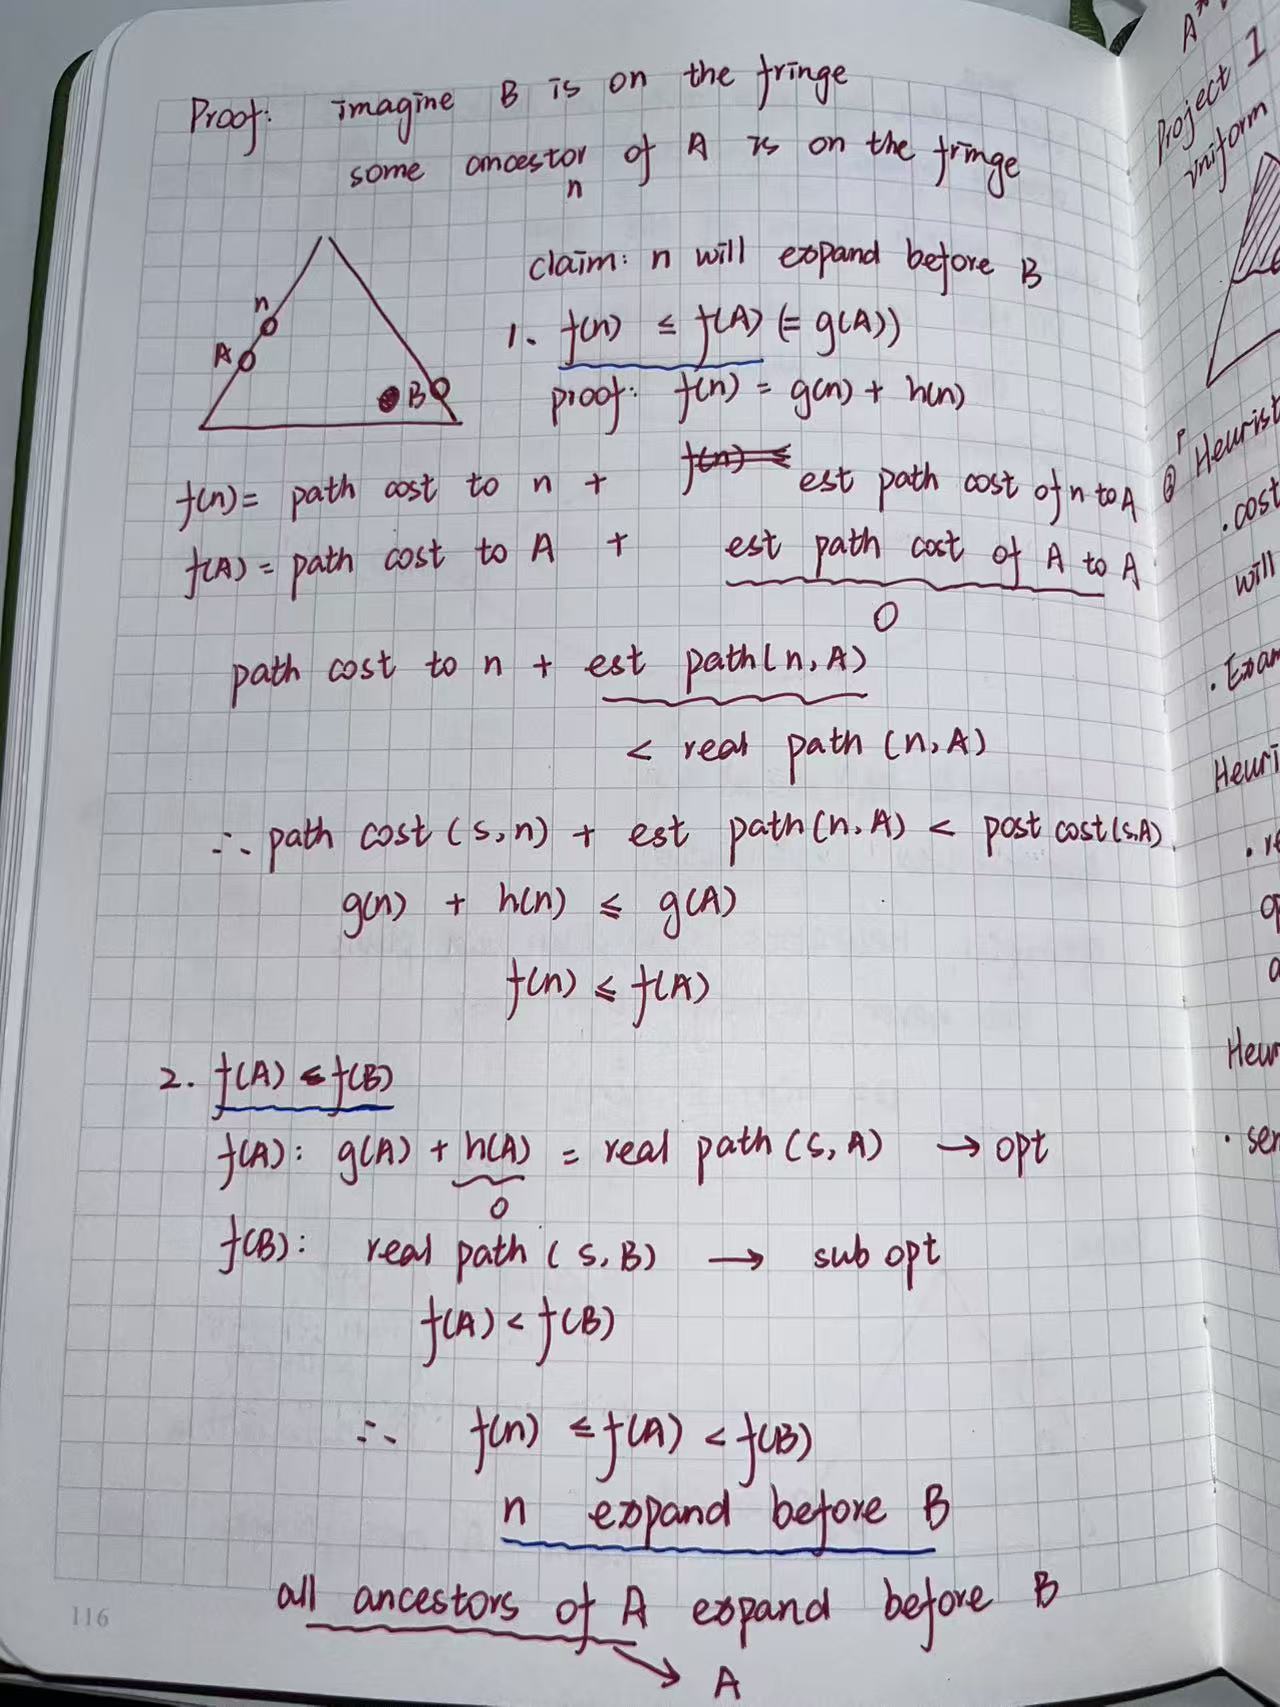 Proof: imagine B is on the fringe
some ancestor of A is on the fringe
n
claim: n will expand before B
n
A
B
1. f(n) ≤ f(A) (= g(A))
proof: f(n) = g(n) + h(n)
f(n) ≤
f(n) = path cost to n + est path cost of n to A
f(A) = path cost to A + est path cost of A to A
0
path cost to n + est path(n, A)
< real path (n, A)
∴ path cost (s, n) + est path(n, A) < post cost (s,A)
g(n) + h(n) ≤ g(A)
f(n) ≤ f(A)
2. f(A) < f(B)
f(A): g(A) + h(A) = real path (s, A) → opt
0
f(B): real path (s, B) → sub opt
f(A) < f(B)
∴ f(n) ≤ f(A) < f(B)
n expand before B
all ancestors of A expand before B
→ A
116
Project 1
uniform
Heurist
. cost
will
. Exam
Heuri
Heur